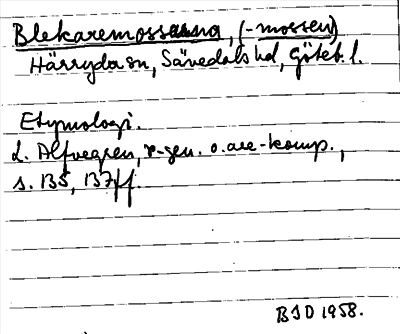 Blekaremossarna, (-mossen)
Härryda sn, Sävedals hd, Göteb. l.
Etymologi.
L. Alfvegren, r-gen. o. are-komp.,
s. 135, 137 ff.
BJD 1958.